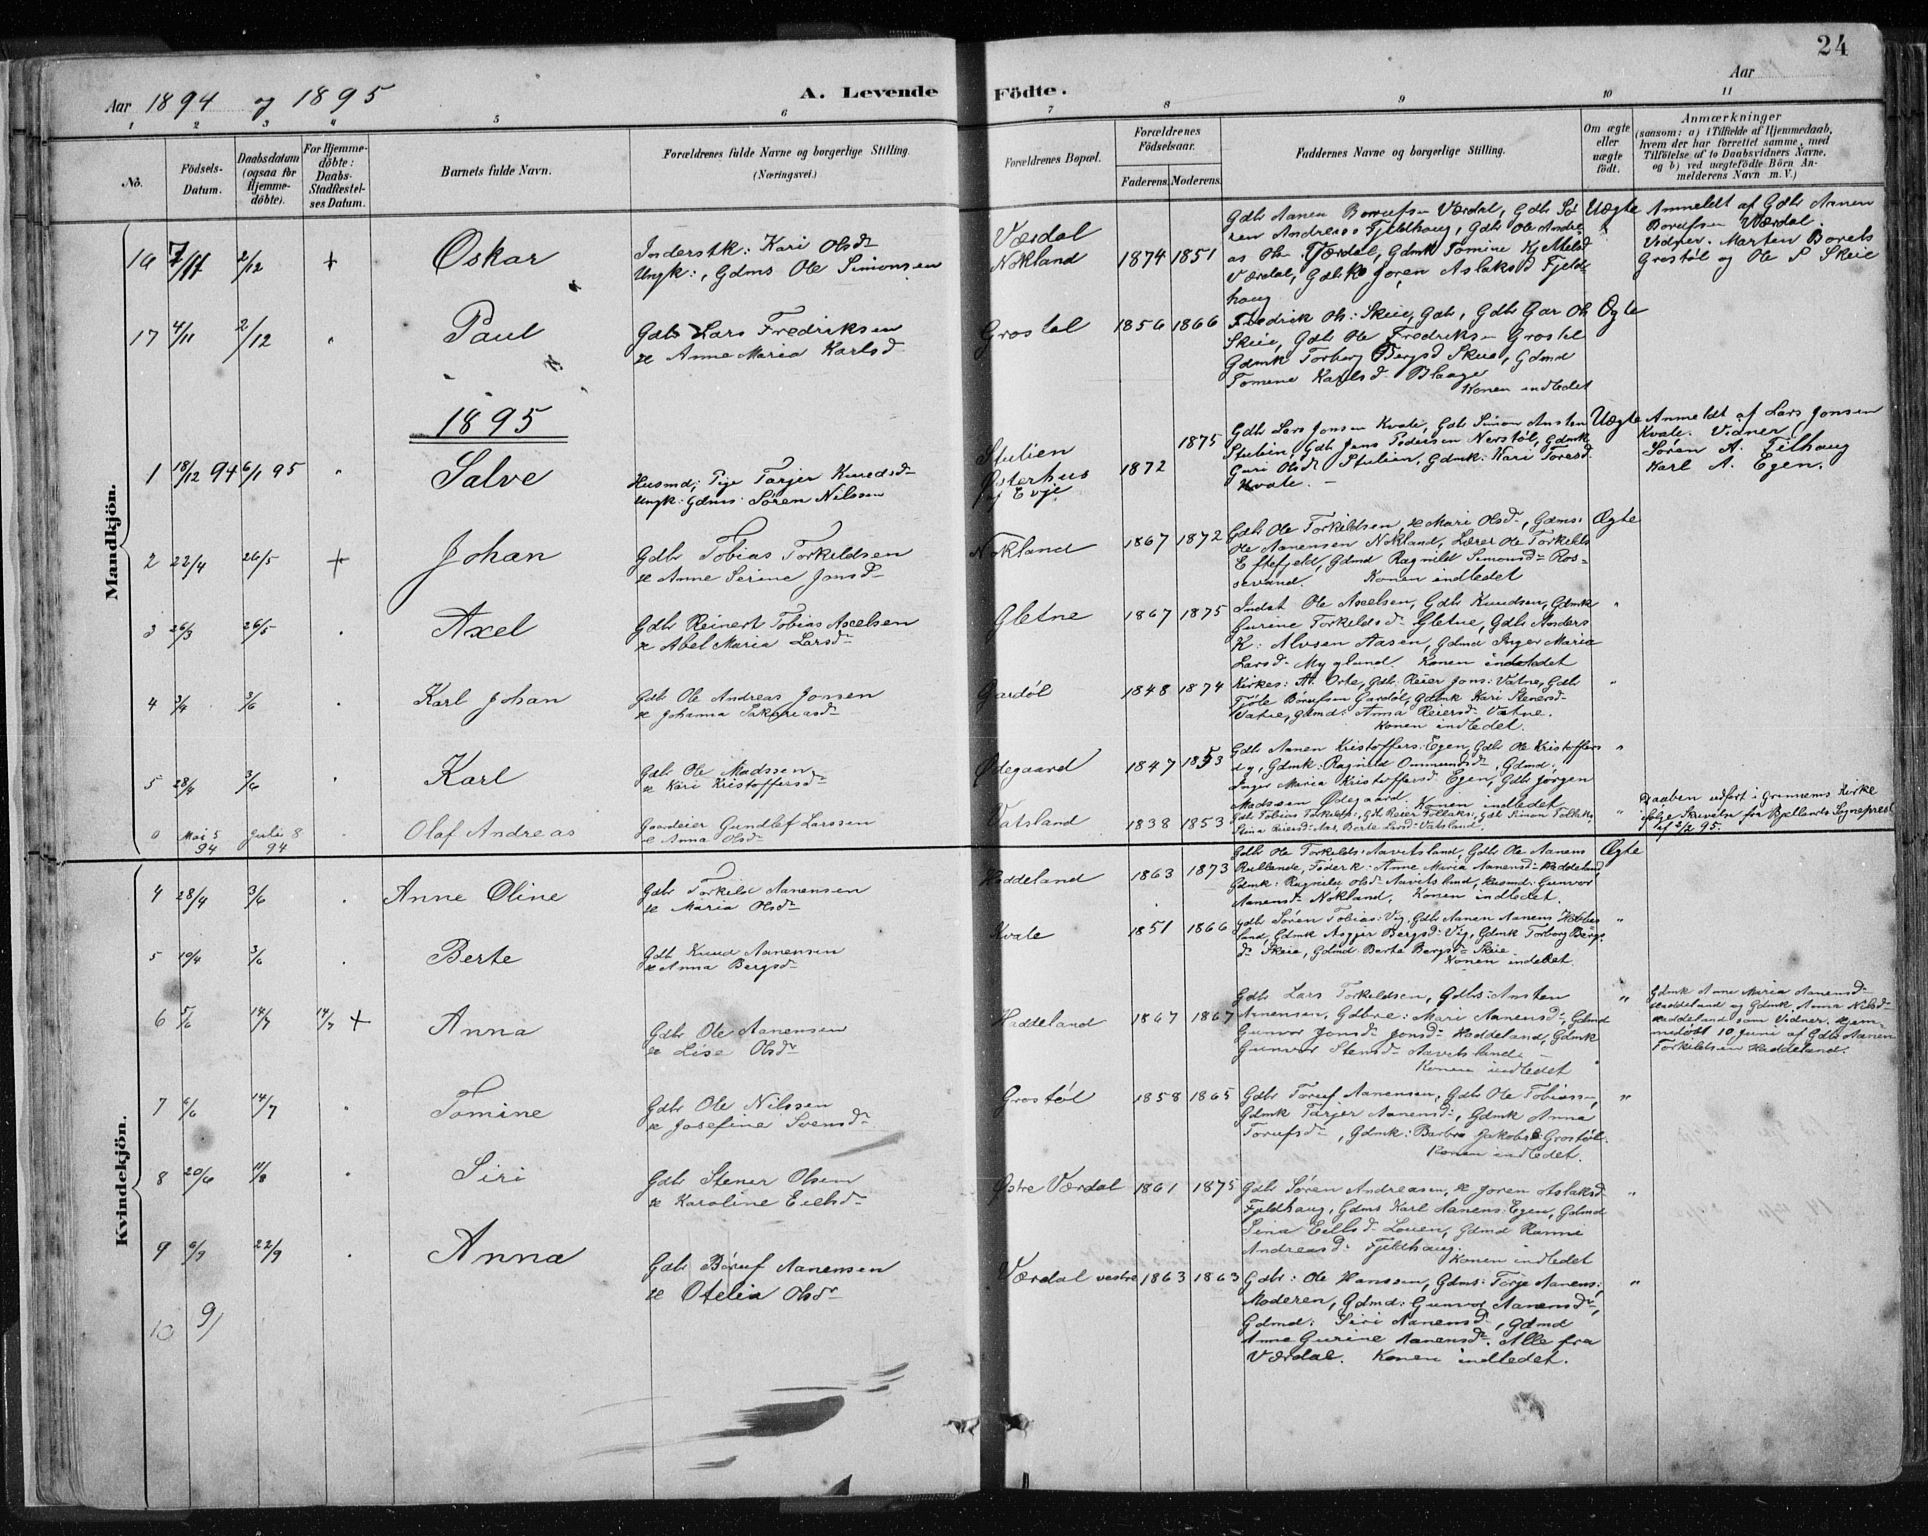 24
Aar 1894 og 1895
A. Levende Födte.
Aar
1 2 3 4 5 6 7 8 9 10 11
No.
Födsels-Datum.
Daabsdatum (ogsaa for Hjemme-döbte).
For Hjemme-döbte: Daabs-Stadfæstel-ses Datum.
Barnets fulde Navn.
Forældrenes fulde Navne og borgerlige Stilling.
(Næringsvei.)
Forældrenes Bopæl.
Forældrenes Födselsaar.
Faderens. Moderens.
Faddernes Navne og borgerlige Stilling.
Om ægte eller uægte födt.
Anmærkninger
(saasom: a) i Tilfælde af Hjemmedaab, hvem der har forrettet samme, med Tilföielse af to Daabsvidners Navne, og b) ved uægtefödte Börn An-melderens Navn m. V.)
Mandkjön.
2/12 + Oskar
Inderstk: Kari Olsdr
Ungk:, Gdms Ole Simonsen
Værdal
Nokland 1874 1851
Gdbr Aanen Borufsen Værdal, Gdbr Sö
ren Andreas: Fjeldhaug, Gdbr Ole Andre
as Ols: Værdal, Gdmk Tomine Kjetelsd
Værdal, Gdbk Joren Aslaksd Fjeld
haug
Uægte
Anmeldt af Gdbr Aanen
Borufsen Værdal.
Vidner. Marten Borets
Grostøl og Ole S Skeie
17 4/11 2/12 " Paul
Gdbr Lars Fredriksen
& Anne Maria Karlsd
Grostøl 1856 1866
Fredrik Ols: Skeie, Gdb, Gdbr Gar Ols
Skeie, Gdbr Ole Fredriksen Grostøl
Gdmk Torborg Bergsd Skeie, Gdmd
Tomine Karlsd. Blaage
Konen indledet
Ægte
1895
1 18/12 94 6/1 95 " Salve
Husmd; Pige Tarjer Knudsdr
Ungk: Gdms: Søren Nilssen
Stulien
Østerhus
af Evje 1872 1875
Gdbr Lars Jonsen Kvale, Gdb Simon Ansten
Stulien, Gdb Jens Pedersen Nerstøl, Gdmk
Guri Olsdr Stulien, Gdmk: Kari Toresd
Kvale. -
Uægte
Anmeldt af Lars Jonsen
Kvale. Vidner
Søren A. Eilhaug
Karl A. Egen.
2 22/4 26/5 + Johan
Gdbr Tobias Torkildsen
& Anne Serine Jonsd
Nokland 1867 1872
Gdbr Ole Torkildsen, & Mari Olsd, Gdms:
Ole Aanensen Nokland, Lærer Ole Torkilds
Eftefjeld, Gdmd Ragnild Simonsd Ros-
sevand. Konen indledet
Ægte
3 26/3 26/5 " Axel
Gdbr Reinert Tobias Axelsen
& Abel Maria Larsdr
Gletne 1867 1875
Indst Ole Axelsen, Gdbr Knudsen, Gdmk
Gurine Torkildsd. Gletne, Gdbr Anders
K: Alvsen Aasen, Gdmd Inger Maria
Larsd. Myglund. Konen indledet
"
4 3/4 3/6 " Karl Johan
Gdbr Ole Andreas Jonsen
& Johanna Sakariasdr
Gardøl 1848 1874
Kirkes: At. Orte, Gdb. Reier Jons: Vatne, Gdb
Tjøle Börufsen Gardøl, Gdmk Kari Stenersd
Vatne, Gdmd: Anna Reiersd. Vatne.
Konen indledet.
"
5 28/4 3/6 " Karl
Gdbr Ole Madssen
& Kari Kristoffersdr
Ødegaard 1847 1853
Gdbr Aanen Kristoffers: Egen, Gdbr Ole Kristoffers
dy, Gdmk: Ragnild Ommundsdr, Gdmd:
Inger Maria Kristoffersd. Egen, Gdbr Jørgen
Madssen Ødegaard. Konen indledet
"
0 Mai 5 94 Juli 8 94 Olaf Andreas
Gaardeier Gundlef Larssen
& Anna Olsdr
Vatsland 1838 1853
Daaben udført i Grinnems Kirke
ifølge Skrivelse fra Bjellands Sognepræst
af 2/2 95.
Kvindekjön.
4 28/4 3/6 " Anne Oline
Gdbr Torkild Aanensen
& Maria Olsdr
Haddeland 1863 1873
Gdbr Ole Torkilds: Aavitsland, Gdbr Ole Aanens
Rullende, Føderk: Anne Maria Aanensd: Haddeland
Gdmk: Ragnild Olsd. Aavitsland, Husmd: Gunvor
Aanensd: Nokland. Konen indledet.
Ægte
5 19/4 3/6 " Berte
Gdbr Knud Aanensen
& Anna Bergsdr
Kvale 1851 1866
Gdbr Søren Tobias: Vig, Gdbr Aanen Aanens Haddes
land, Gdmk Asgjer Bergsd: Vig, Gdmk Torborg Bergs
d. Skeie, Gdmd Berte Bergsd. Skeie
Konen indledet.
"
6 5/6 14/7 14/7 + Anna
Gdbr Ole Aanensen
& Lise Olsdr
Haddeland 1867 1867
Gdbr Lars Torkildsen, Gdbs: Ansten
Aanensen, Gdbre: Mari Aanensdr, Gdmd
Gunvor Jonsdr Jonsd: Haddeland, Gdmk
Gunvor Stensd: Aavitsland. -
Konen indledet
"
Gdmk Anne Maria Aanensdr
Haddeland og Gdmk Anna Nilsd
Haddeland som Vidner. Hjem-
medøbt 10 Juni af Gdbr Aanen
Torkildsen Haddeland.
7 6/6 14/7 " Tomine
Gdbr Ole Nilssen
& Josefine Svensdr
Grostøl 1858 1865
Gdbr Toruf Aanensen, Gdbr Ole Tobiass-,
Gdmk Tarjer Aanensd:, Gdmk Anna
Torufsdr, Gdmk: Barbro Jakobsd: Grostøl.
Konen indledet.
"
8 20/6 11/8 " Siri
Gdbr Stener Olsen
& Karoline Eilsdr
Østre Værdal 1861 1875
Gdbr Søren Andreasen, & Joren Aslaksd
Fjeldhaug, Gdms Karl Aanens: Egen, Gdmd
Sina Eilsd: Louen, Gdmd Ranni
Andreasd: Fjeldhaug.
Konen indledet
"
9 6/9 22/9 " Anna
Gdbr Boruf Aanensen
& Otelia Olsdr
Værdal vestre 1863 1863
Gdbr: Ole Hanssen, Gdms: Torje Aanens;
Moderen, Gdmd: Gunvor Aanensdr,
Gdmd: Siri Aanensd, Gdmd
Anne Gurine Aanensdr. Alle fra
Værdal. Konen indledet.
"
10 9/